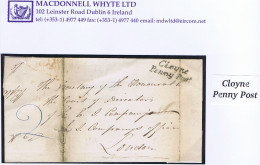 MACDONNELL WHYTE LTD
102 Leinster Road Dublin 6 Ireland
tel: (+353-1) 4977 449 fax: (+353-1) 4977 440 email: mdwltd@eircom.net
Cloyne
Penny Post
The Secretary of the
the Court of Directors
Company
Company's Office
London
Cloyne
Penny Post